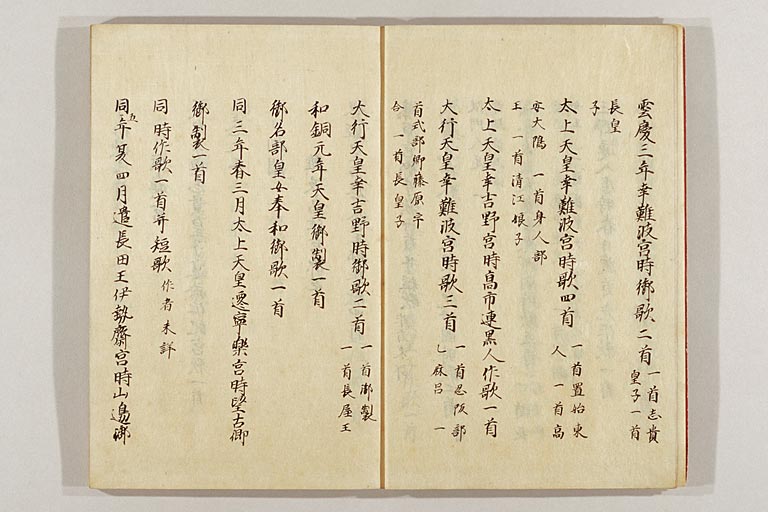 雲慶三年幸難波宮時御歌二首 一首志貴
皇子一首
長皇
子
太上天皇幸難波宮時歌四首 一首置始東
人 一首高
安大嶋 一首身人部
王 一首清江娘子
太上天皇幸吉野宮時高市連黒人作歌一首
大行天皇幸難波宮時歌三首 一首忍阪部
乙麻呂 一
首式部卿藤原宇
合 一首長皇子
大行天皇幸吉野時御歌二首 一首御製
一首長屋王
和銅元年天皇御製一首
御名部皇女奉和御歌一首
同三年春三月太上天皇遷寧樂宮時望古郷
御製一首
同時作歌一首并短歌 作者未詳
同五年夏四月遣長田王伊勢齋宮時山邊御